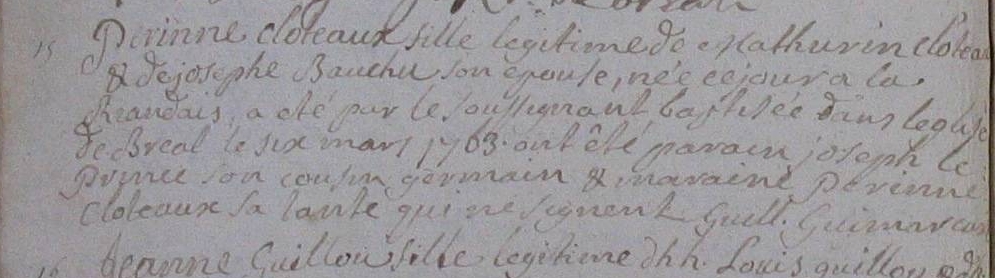 15 Perinne cloteaux fille legitime de Mathurin cloteau
& de josephe Bauchu son epouse, née ce jour a la
Brandais, a eté par le soussignant baptisée dans leglise
de Breal le six mars 1763. ont êté parain joseph le
Prince son cousin germain & maraine perinne
Cloteaux sa tante qui ne signent Guill. Guimar
16 Jeanne Guillou fille legitime dhh. Louis guillou & de